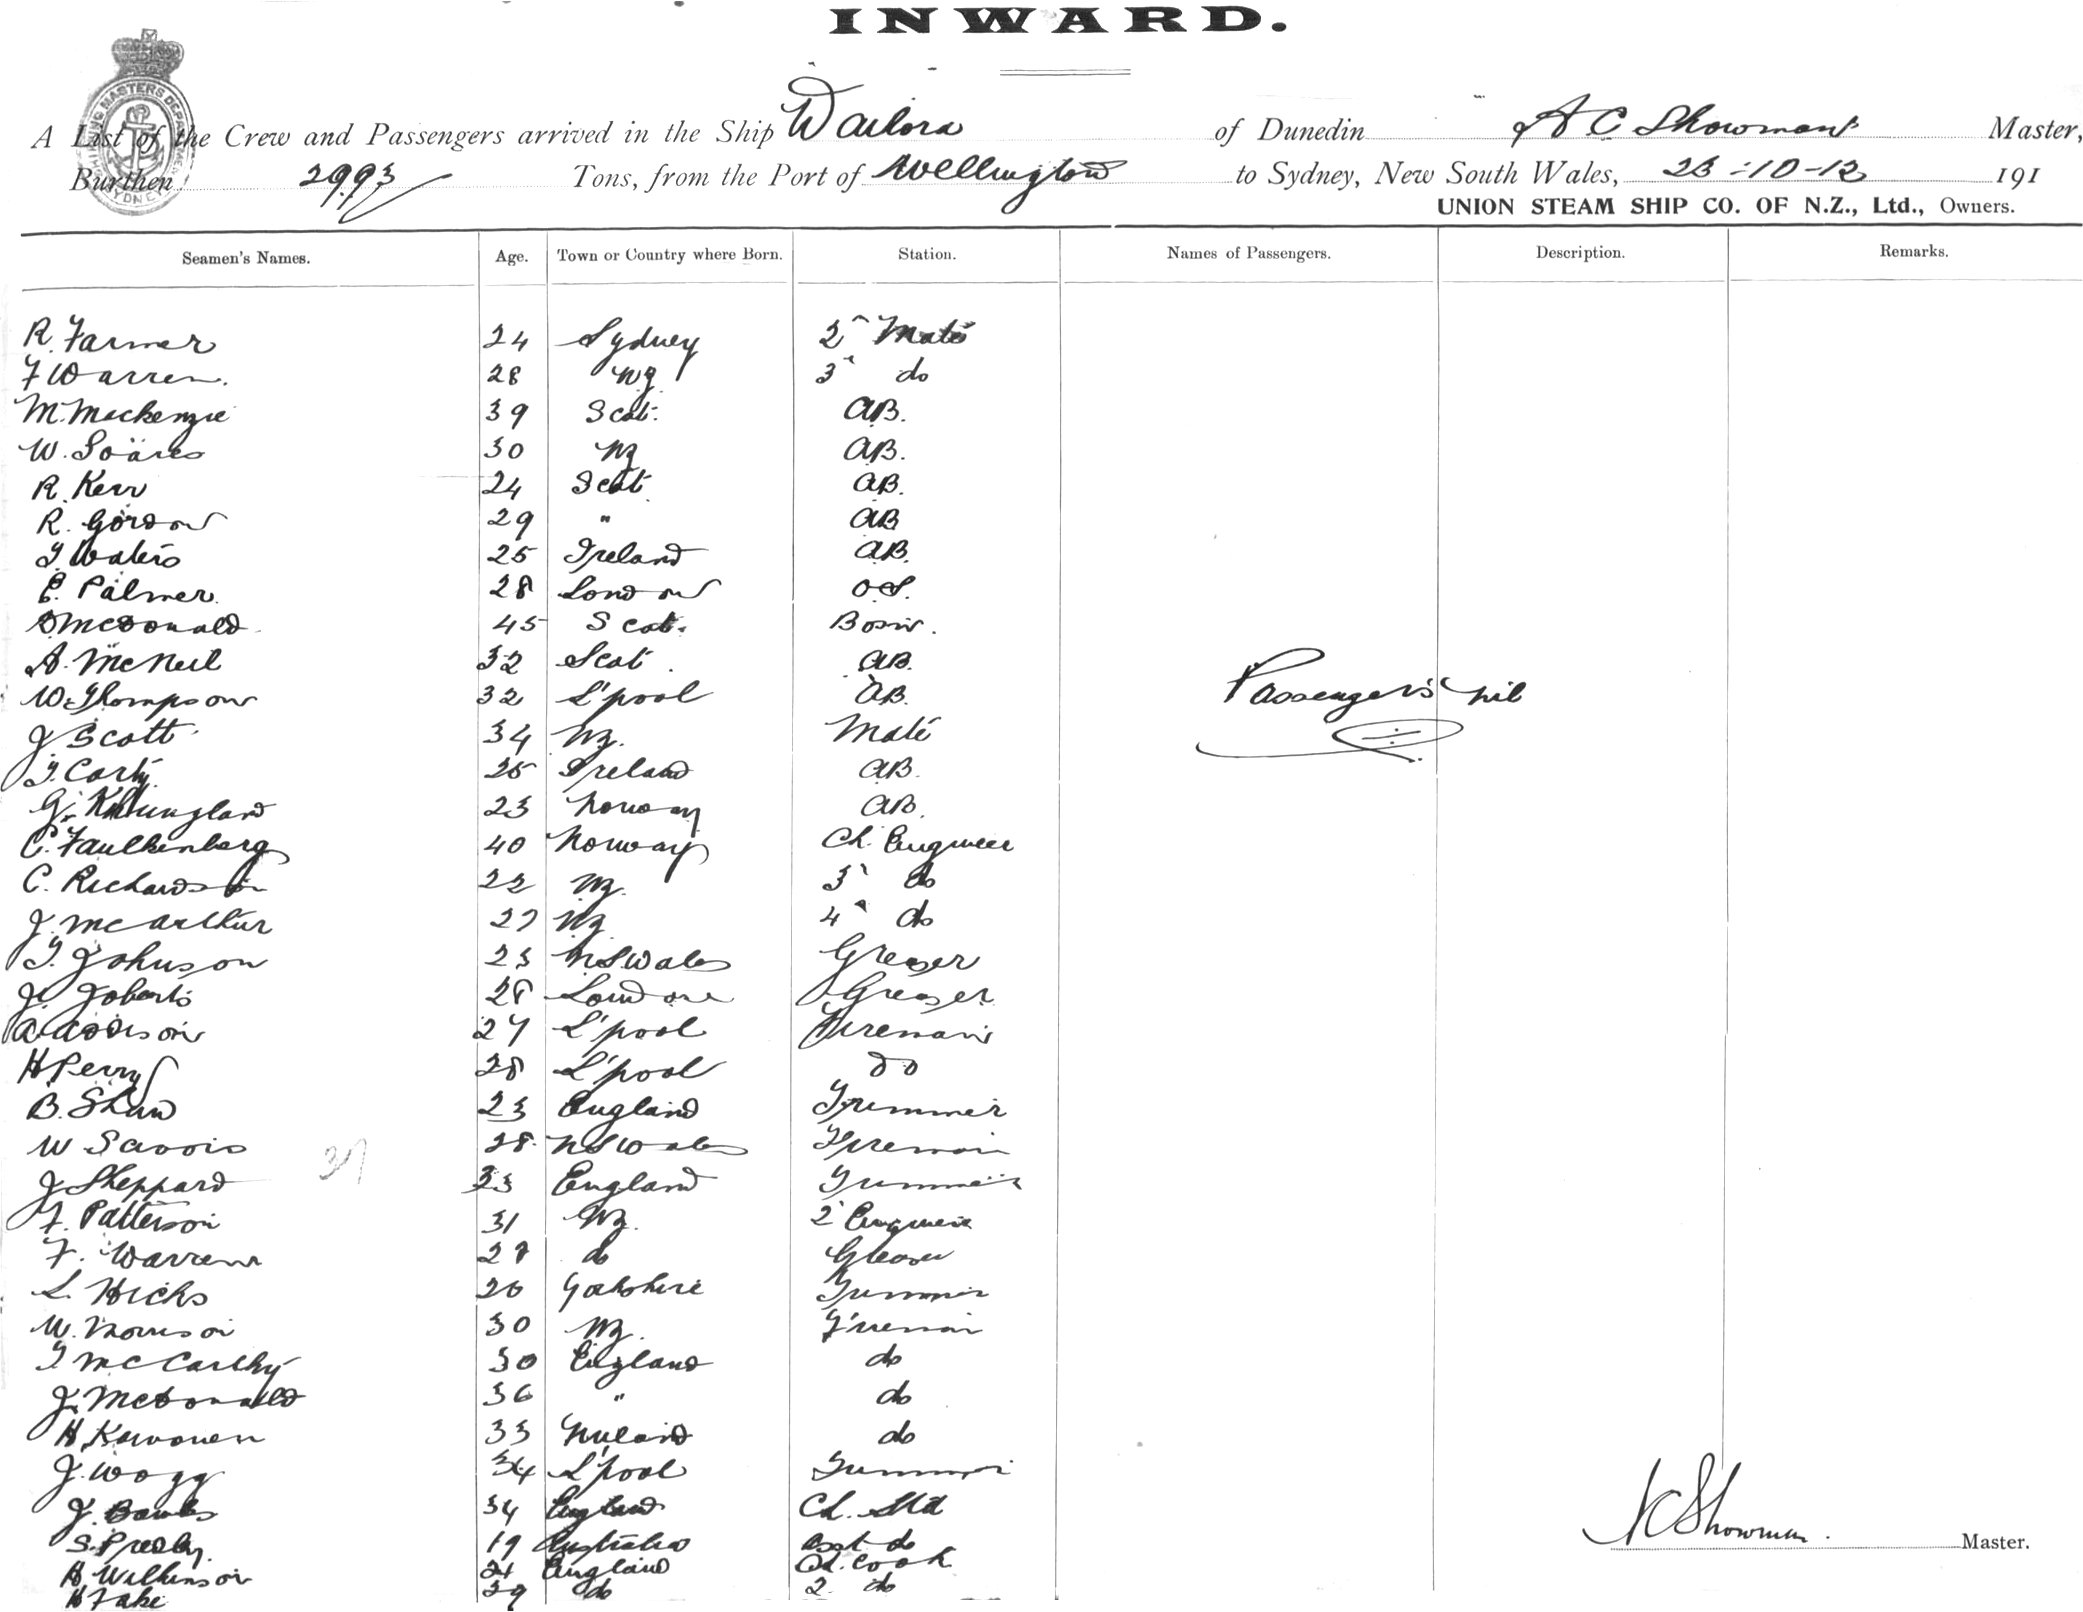 INWARD.
SHIPPING MASTERS DEPARTMENT SYDNEY
A List of the Crew and Passengers arrived in the Ship Wailora of Dunedin A C Showman Master,
Burthen 2993 Tons, from the Port of Wellington to Sydney, New South Wales, 23-10-12 191
UNION STEAM SHIP CO. OF N.Z., Ltd., Owners.
Seamen's Names. Age. Town or Country where Born. Station. Names of Passengers. Description. Remarks.
R. Farmer 24 Sydney 2 Mate
F Warren. 28 NZ 3 do
M. Mackenzie 39 Scot. AB.
W. Soares 30 NZ AB.
R. Kerr 24 Scot AB.
R. Gordon 29 " AB
T. Waters 25 Ireland AB.
E. Palmer. 28 London OS.
D McDonald 45 Scot. Bosn.
A. McNeil 32 Scot. AB.
W. Thompson 32 L'pool AB.
Passengers nil
J Scott 34 NZ. Mate
T. Carty 25 Ireland AB.
G. 23 Norway AB.
C. Faulkenberg 40 Norway Ch. Engineer
C. Richardson 22 NZ. 3 do
J. McArthur 27 NZ 4 do
T. Johnson 23 NSWales Greaser
J. Joberts 28 London Greaser
A. Addison 27 L'pool Fireman
H Perry 28 L'pool do
B. Shaw 23 England Trimmer
W Savois 28 NSWales Fireman
31
J Sheppard 33 England Trimmer
F. Patterson 31 NZ. 2 Engineer
F. Warren 27 do Greaser
L. Hicks 26 Yorkshire Trimmer
W. Morrison 30 NZ. Fireman
T McCarthy 30 England do
J. McDonald 36 " do
H. 33 do
J. Wogg 34 L'pool Trimmer
J. Banks 34 England Ch. Std
S. Presly. 19 Australia Asst do
H Wilkinson 24 England Ch. Cook
H Fake 29 do 2 do
A C Showman. Master.